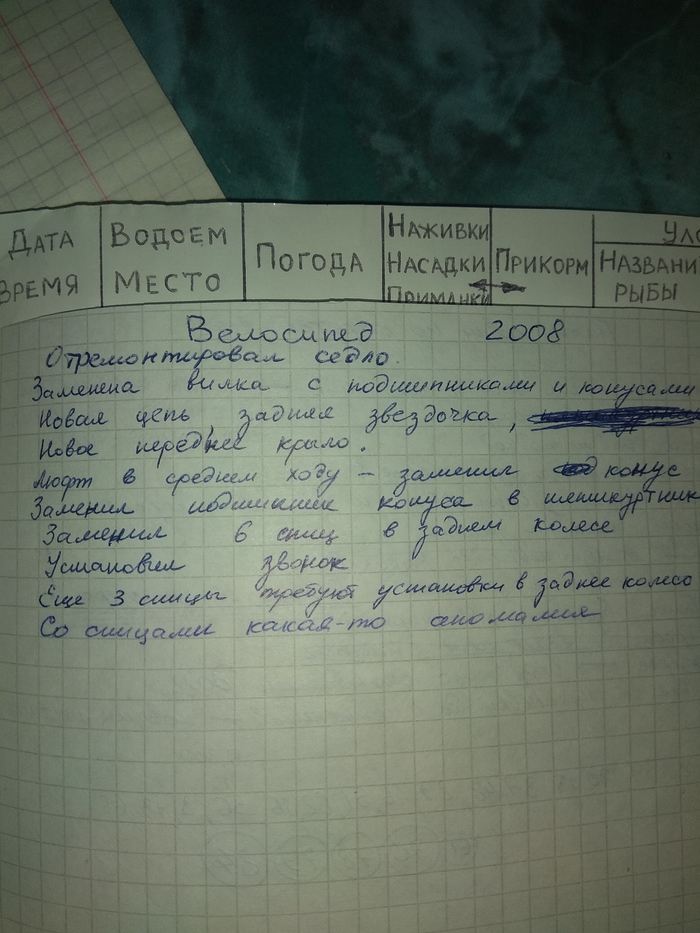 ДАТА ВРЕМЯ
ВОДОЕМ МЕСТО
ПОГОДА
НАЖИВКИ НАСАДКИ ПРИМАНКИ
ПРИКОРМ
УЛО
НАЗВАНИ РЫБЫ
Велосипед 2008
Отремонтировал седло.
Заменена вилка с подшипниками и конусами
Новая цепь, задняя звездочка,
Новое переднее крыло.
Люфт в среднем ходу – заменил конус
Заменил подшипник конуса в
Заменил 6 спиц в заднем колесе
Установил звонок
Еще 3 спицы требуют установки в заднее колесо
Со спицами какая-то аномалия